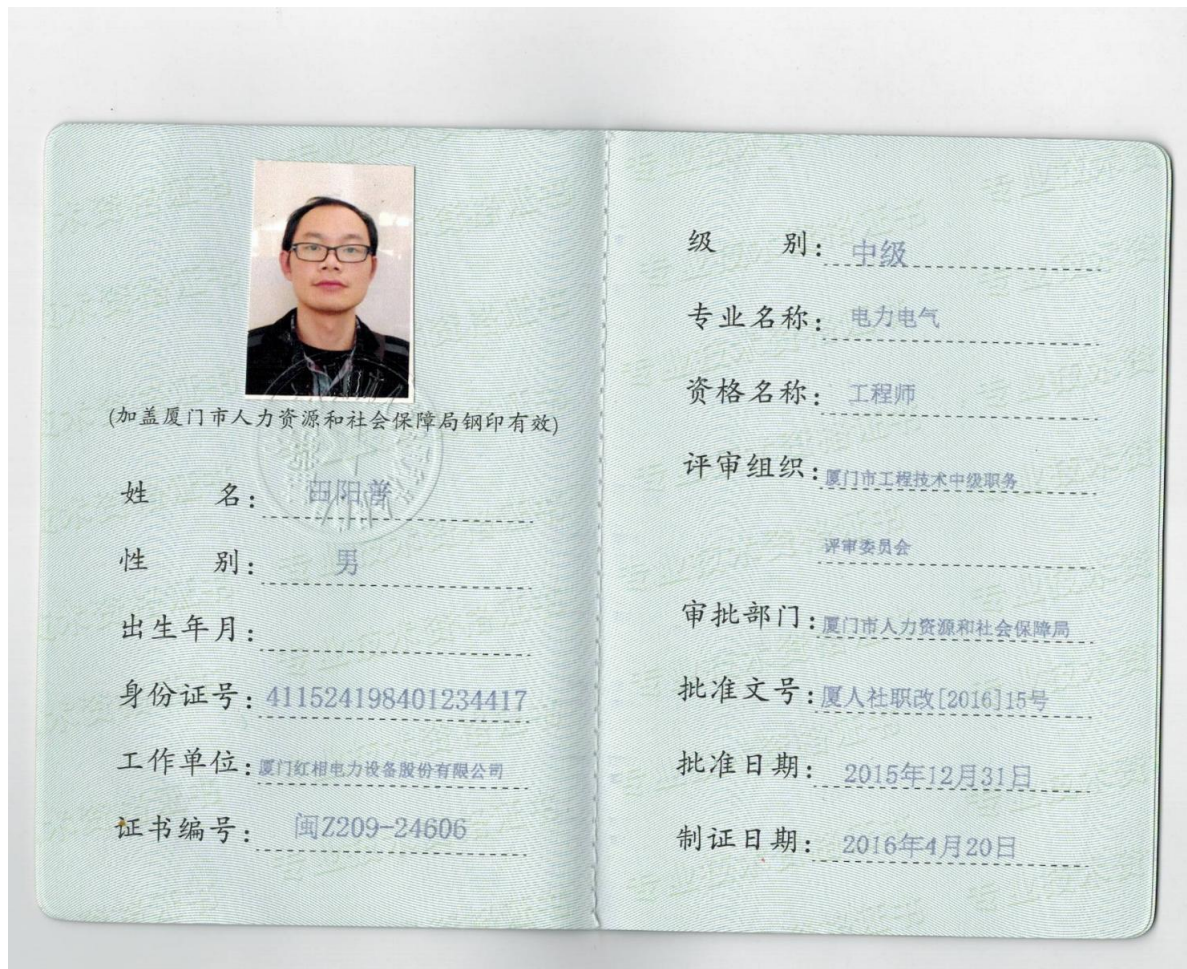 (加盖厦门市人力资源和社会保障局钢印有效)
姓 名: 田阳善
性 别: 男
出生年月:
身份证号: 411524198401234417
工作单位: 厦门红相电力设备股份有限公司
证书编号: 闽Z209-24606
级 别: 中级
专业名称: 电力电气
资格名称: 工程师
评审组织: 厦门市工程技术中级职务
评审委员会
审批部门: 厦门市人力资源和社会保障局
批准文号: 厦人社职改[2016]15号
批准日期: 2015年12月31日
制证日期: 2016年4月20日